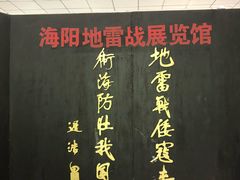 海阳地雷战展览馆
地雷战倭寇丧
卫海防壮我国
迟浩田